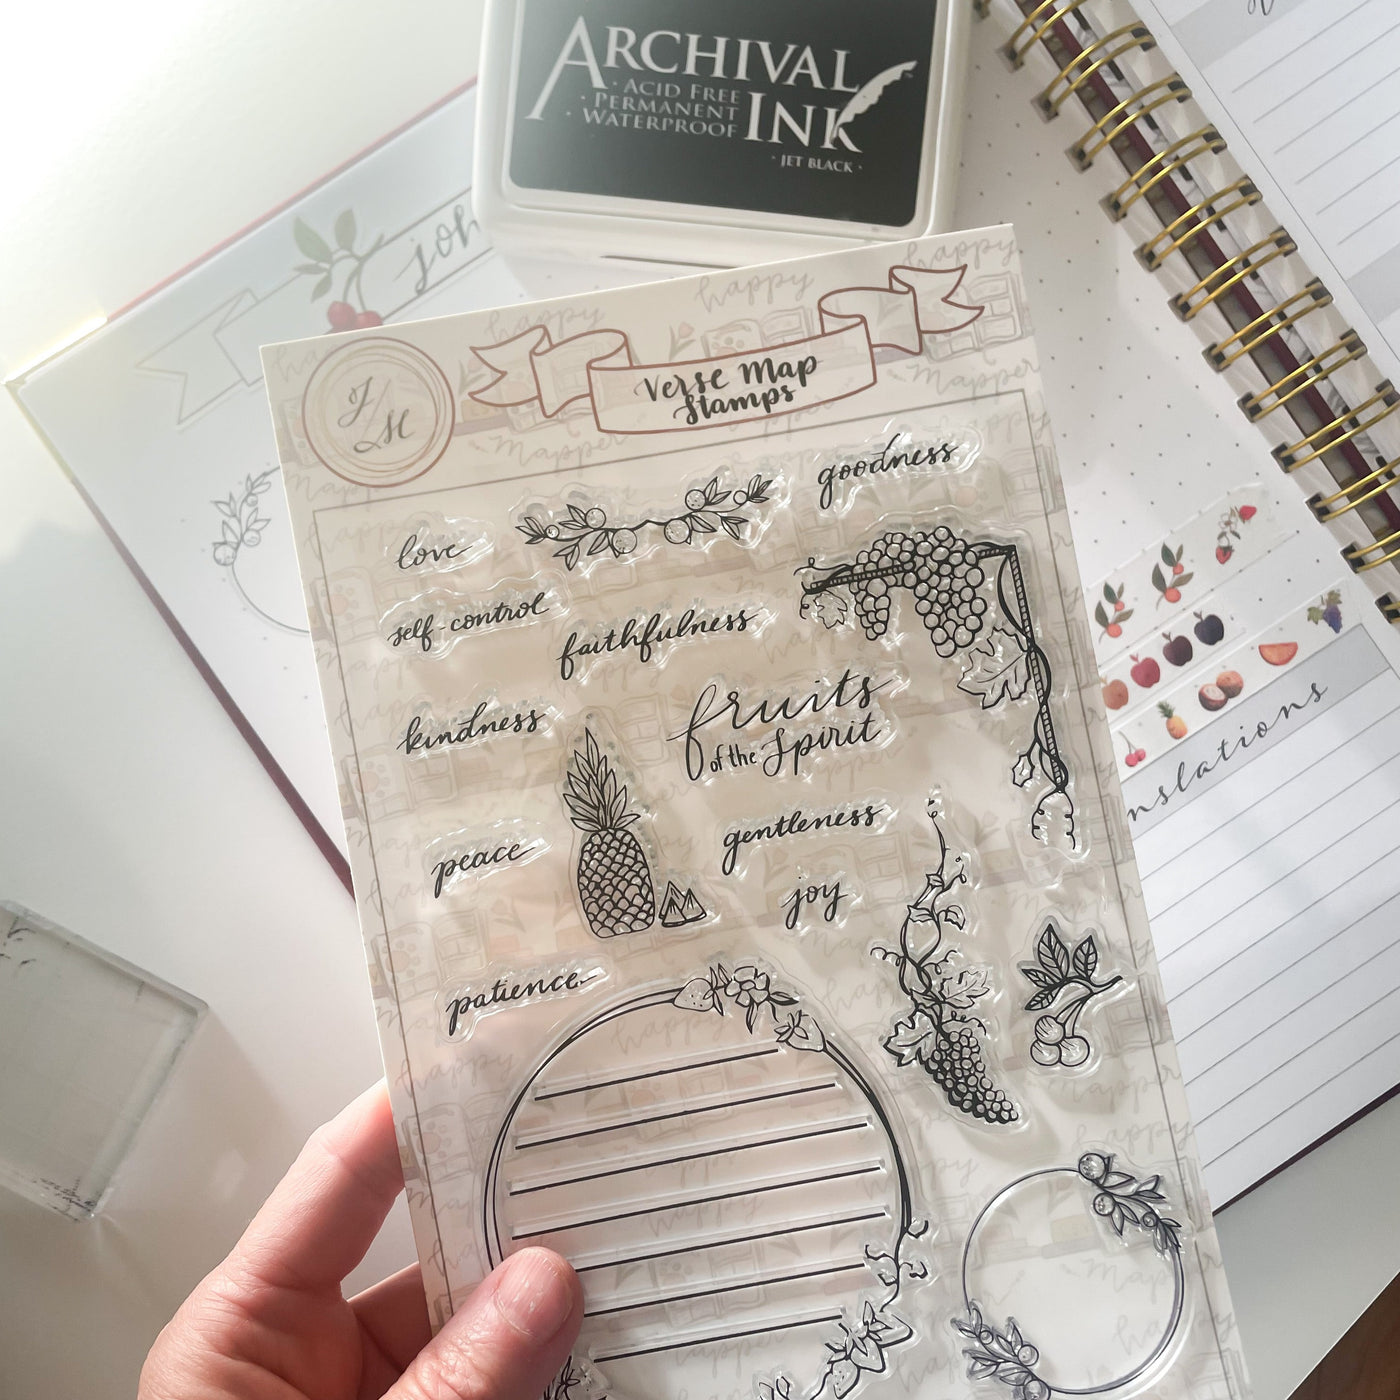 ARCHIVAL
INK
· ACID FREE
· PERMANENT
· WATERPROOF
· JET BLACK ·
joh
J/H
Verse Map
Stamps
goodness
love
self-control
faithfulness
kindness
fruits
of the Spirit
peace
gentleness
joy
patience
nslations
happy
happy
happy
Mapper
Mapper